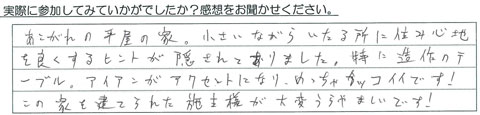 実際に参加してみていかがでしたか？感想をお聞かせください。
あこがれの平屋の家。小さいながら いたる所に住み心地
を良くするヒントが隠されてありました。特に造作のテ
ーブル。アイアンがアクセントになり、めっちゃカッコイイです！
この家を建てられた施主様が大変うらやましいです！